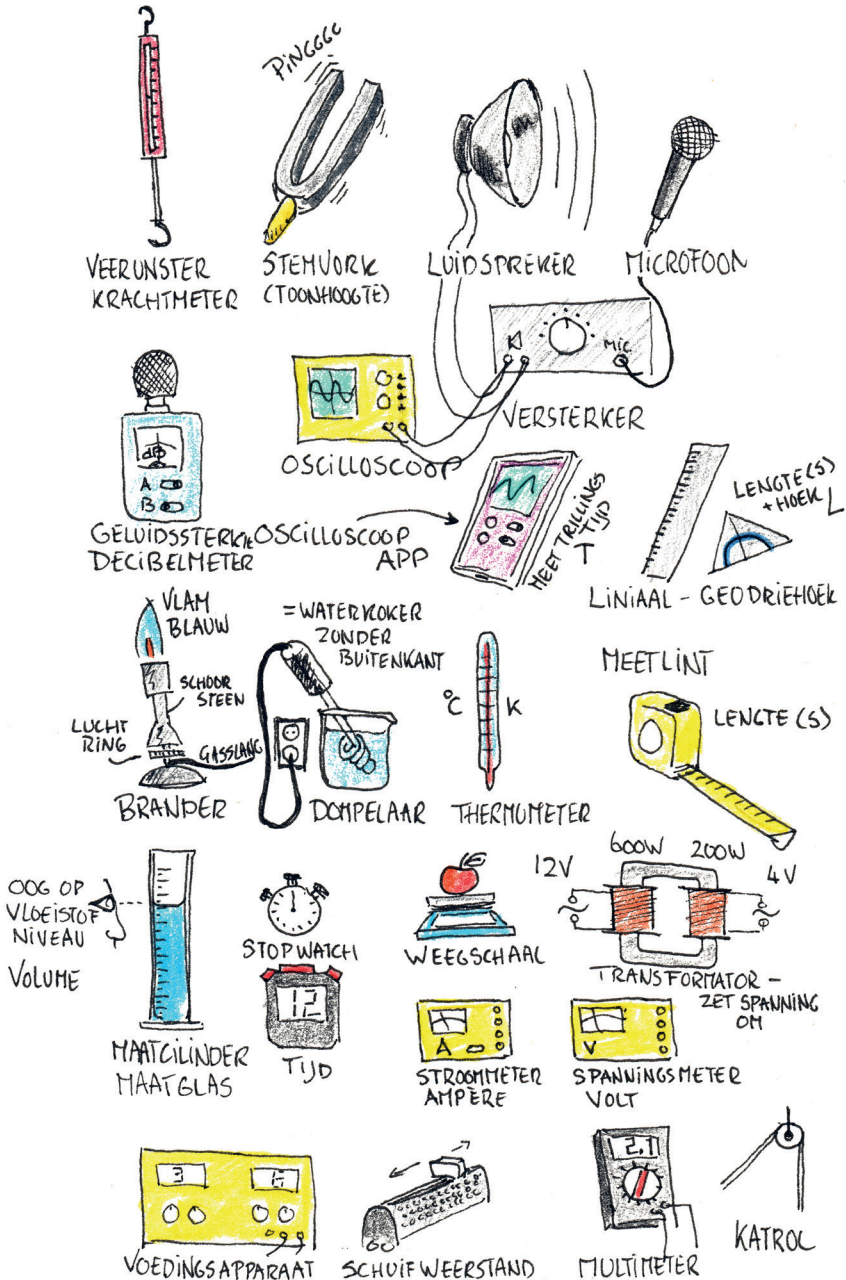 PINGGGG
VEERUNSTER
KRACHTMETER
STEMVORK
(TOONHOOGTE)
LUIDSPREKER
MICROFOON
MIC
VERSTERKER
OSCILLOSCOOP
dB
A
B
GELUIDSSTERKTE
DECIBELMETER
OSCILLOSCOOP
APP
MEET TRILLINGS
TIJD
T
LENGTE (S)
+ HOEK ∠
LINIAAL - GEODRIEHOEK
VLAM
BLAUW
SCHOOR
STEEN
LUCHT
RING
GASSLANG
BRANDER
=WATERKOKER
ZONDER
BUITENKANT
DOMPELAAR
°C
K
THERMOMETER
MEETLINT
LENGTE (S)
OOG OP
VLOEISTOF
NIVEAU
VOLUME
MAATCILINDER
MAATGLAS
STOPWATCH
12
TIJD
WEEGSCHAAL
600W
200W
12V
4V
TRANSFORMATOR -
ZET SPANNING
OM
A
STROOMMETER
AMPÈRE
V
SPANNINGSMETER
VOLT
3
VOEDINGSAPPARAAT
SCHUIFWEERSTAND
2.1
MULTIMETER
KATROL